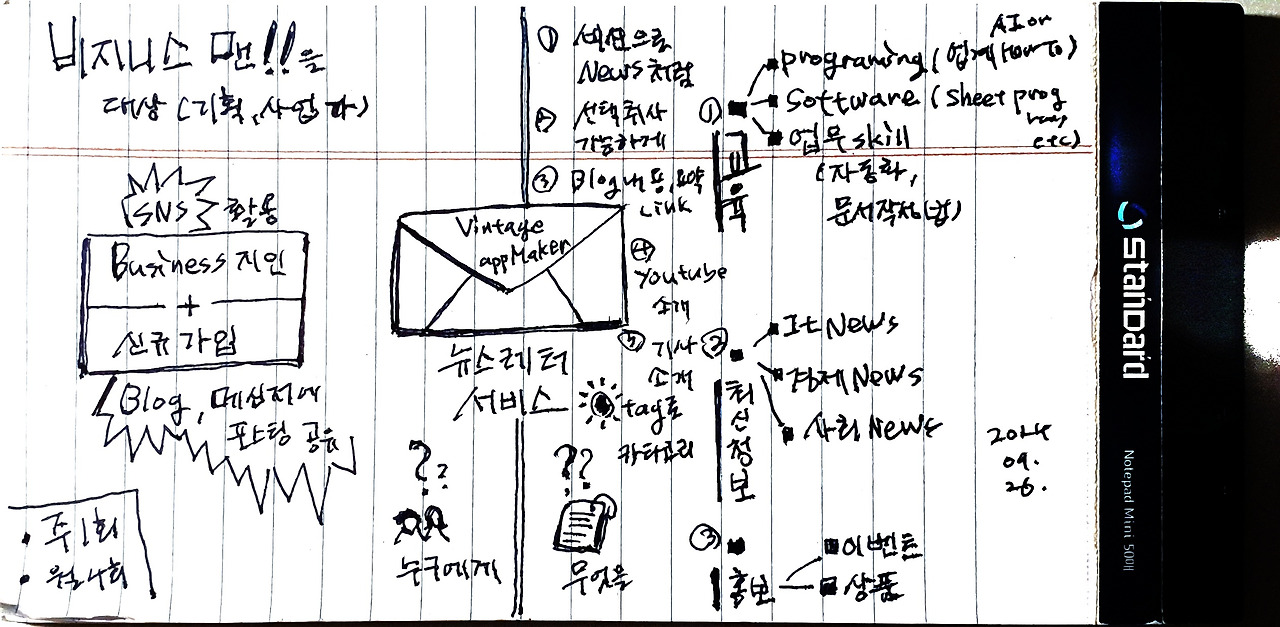 비지니스 맨!!을
대상 (기획, 사업가)
SNS 활용
Business 지인
+
신규 가입
Blog, 메신저에
포스팅 공유
• 주 1회
• 월 4회
Vintage
appMaker
뉴스레터
서비스
??
누구에게
??
무엇을
① 버전으로
News처럼
② 선택 취사
가능하게
③ Blog내용, 요약
Link
④
Youtube
소개
⑤ 기사
소개
tag로
카타고리
① 교육
programing (업계 HowTo)
AI or
Software (Sheet prog
etc)
업무 skill
(자동화,
문서작성(법)
② 최신정보
It News
경제 News
사회 News
③ 홍보
이벤트
상품
2024
09.
26.
Standard
Notepad Mini 500II